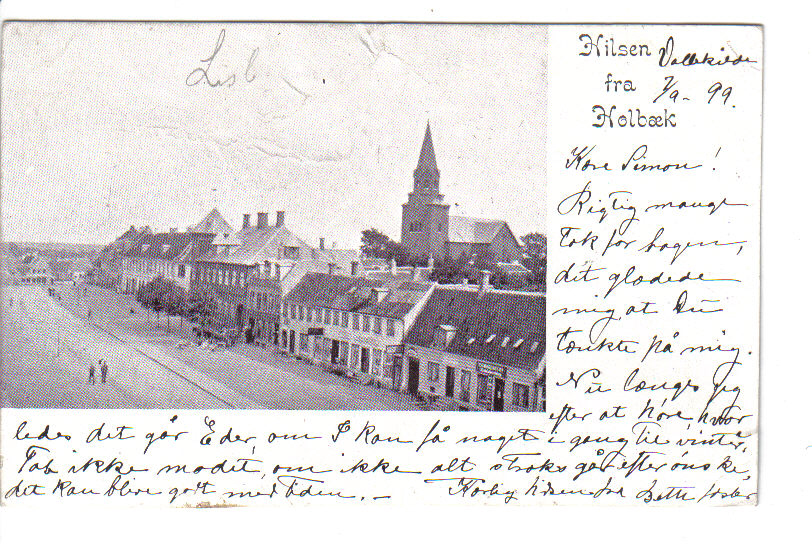 Lisb
Hilsen
fra
Holbæk
Vallekilde
7/9 - 99.
Kære Simon!
Rigtig mange
Tak for bogen,
det glædede
mig, at Du
tænkte på mig.
Nu længes jeg
efter at høre, hvor
ledes det går Eder, om I kan få noget i gang til vinter,
Tab ikke modet, om ikke alt straks går efter ønske,
det kan blive godt med Tiden. -
Kærlig hilsen fra